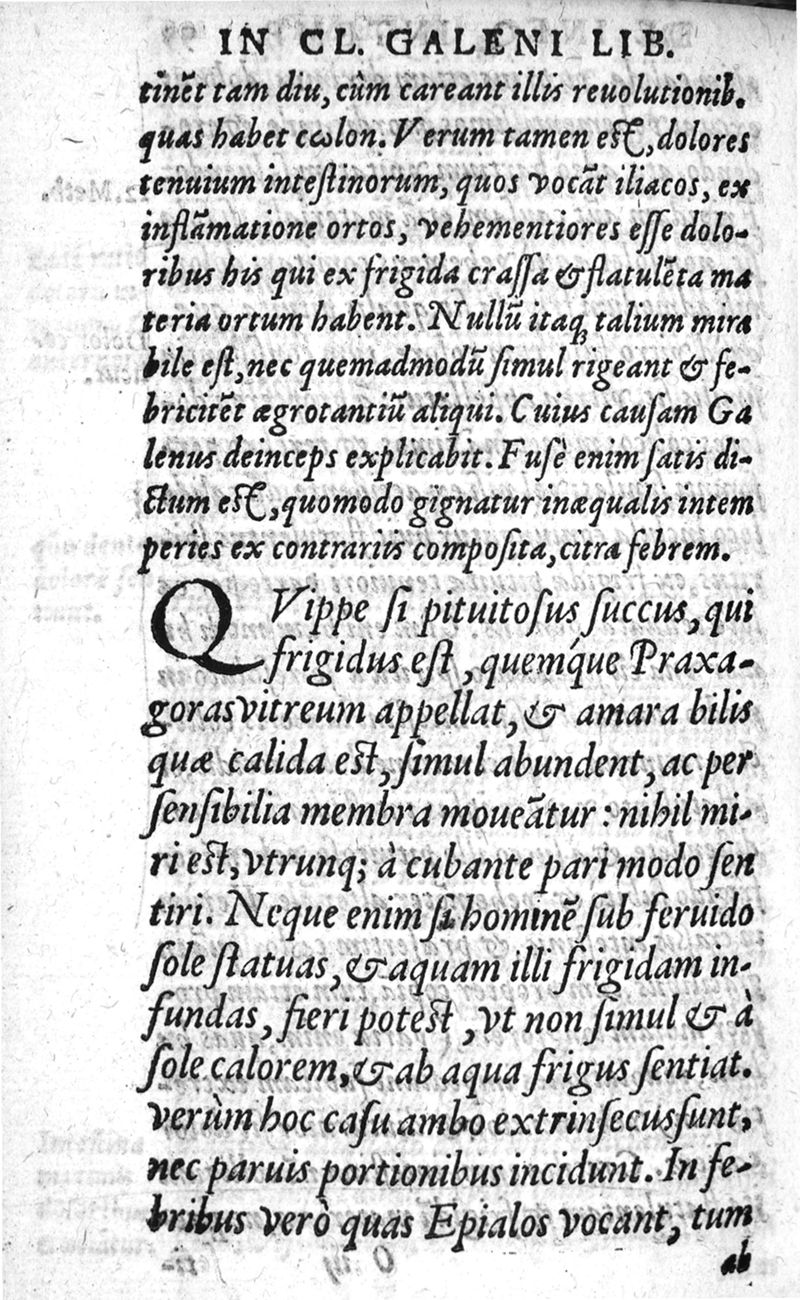 IN CL. GALENI LIB.
tinēt tam diu, cûm careant illis reuolutionib.
quas habet cωlon. Verum tamen est, dolores
tenuium intestinorum, quos vocāt iliacos, ex
inflāmatione ortos, vehementiores esse dolo-
ribus his qui ex frigida crassa & flatulēta ma
teria ortum habent. Nullū itaq; talium mira
bile est, nec quemadmodū simul rigeant & fe-
bricitēt ægrotantiū aliqui. Cuius causam Ga
lenus deinceps explicabit. Fusè enim satis di-
ctum est, quomodo gignatur inæqualis intem
peries ex contrariis composita, citra febrem.
QVippe si pituitosus succus, qui
frigidus est, quemq́ue Praxa-
goras vitreum appellat, & amara bilis
quæ calida est, simul abundent, ac per
sensibilia membra moueātur: nihil mi-
ri est, vtrunq; à cubante pari modo sen
tiri. Neque enim si hominē sub feruido
sole statuas, & aquam illi frigidam in-
fundas, fieri potest, vt non simul & à
sole calorem, & ab aqua frigus sentiat.
verùm hoc casu ambo extrinsecus sunt,
nec paruis portionibus incidunt. In fe-
bribus verò quas Epialos vocant, tum
ab